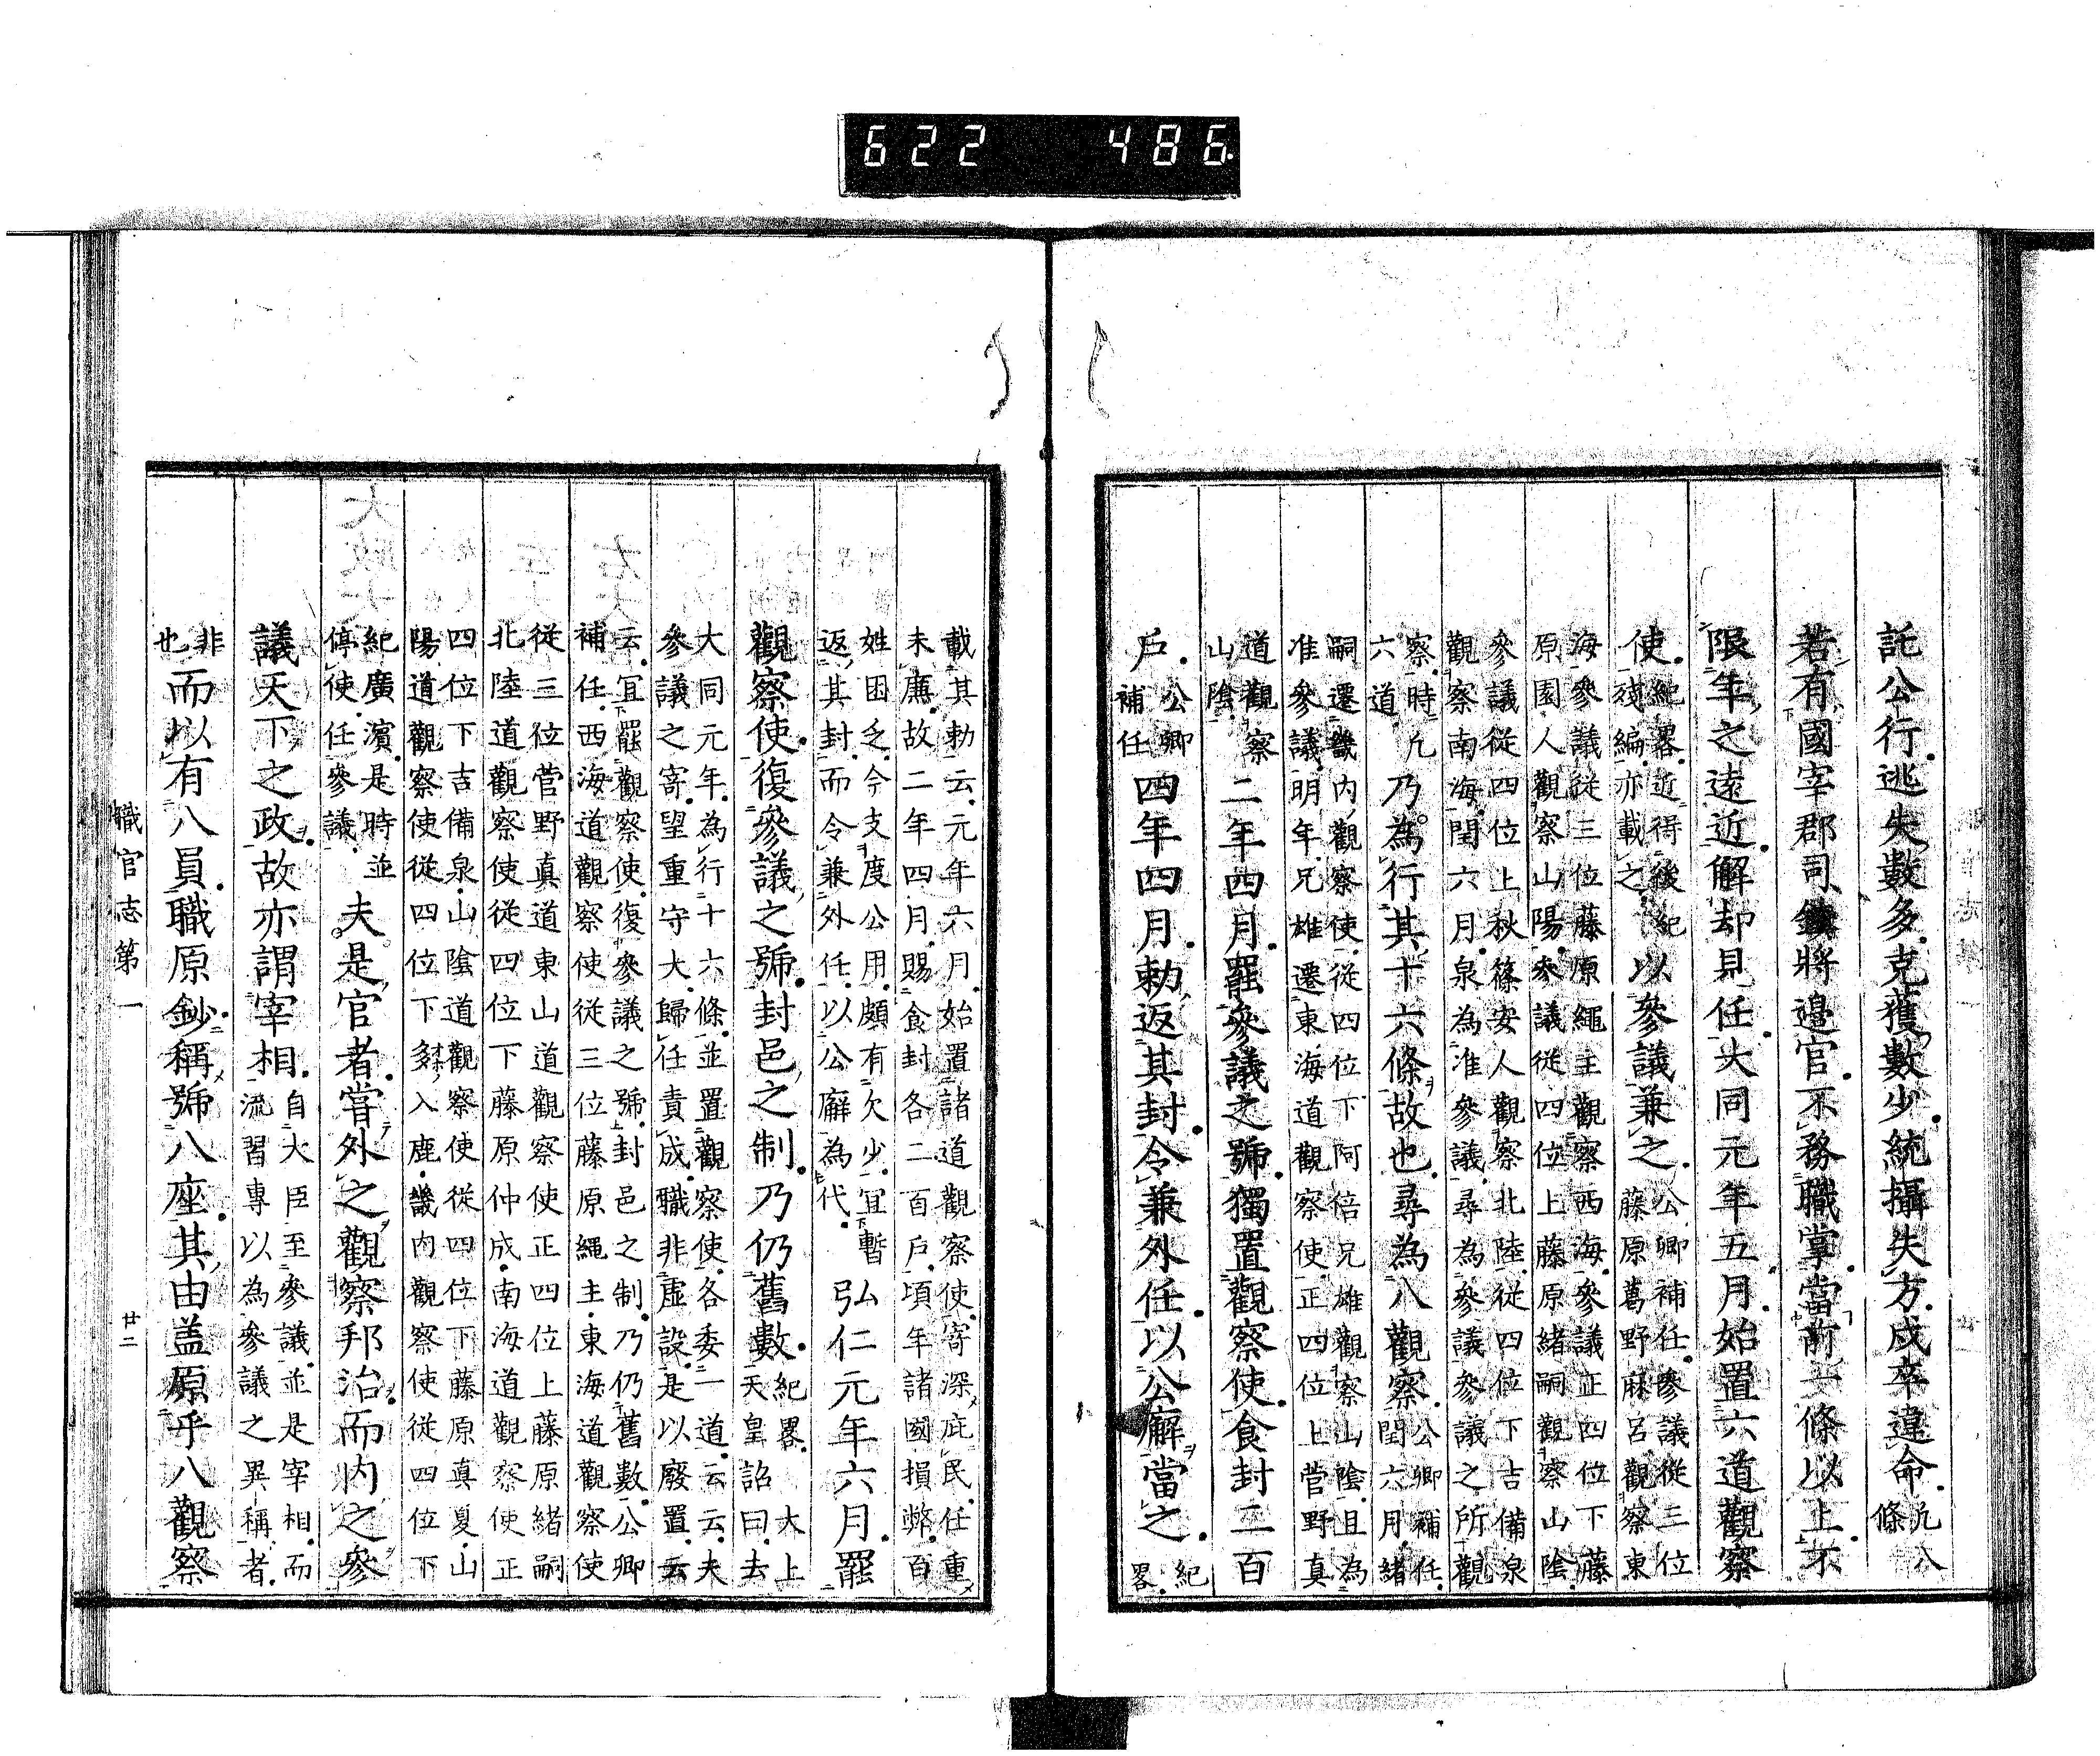 託公行逃失數多克獲數少統攝失方戍卒違命凡八
條
若有國宰郡司鎮將邊官不務職掌當前二條以上不
限年之遠近解却見任大同元年五月始置六道觀察
使紀畧近得後紀
殘編亦載之以參議兼之公卿補任參議從三位
藤原葛野麻呂觀察東
海參議從三位藤原繩主觀察西海參議正四位下藤
原園人觀察山陽參議從四位上藤原緒嗣觀察山陰
參議從四位上秋篠安人觀察北陸從四位下吉備泉
觀察南海閏六月泉為准參議尋為參議參議之所觀
察時凡
六道乃為行其十六條故也尋為八觀察公卿補任
閏六月緒
嗣遷畿內觀察使從四位下阿倍兄雄觀察山陰且為
准參議明年兄雄遷東海道觀察使正四位上菅野真
道觀察
山陰二年四月罷參議之號獨置觀察使食封二百
戶公卿
補任四年四月勅返其封令兼外任以公廨當之紀
畧
載其勅云元年六月始置諸道觀察使寄深庇民任重
未廌故二年四月賜食封各二百戶頃年諸國損弊百
姓困乏今支度公用頗有欠少宜暫
返其封而令兼外任以公廨為代弘仁元年六月罷
觀察使復參議之號封邑之制乃仍舊數紀畧大上
天皇詔曰去
大同元年為行十六條並置觀察使各委一道云云夫
參議之寄望重守大歸任責成職非虛設是以廢置云
云宜罷觀察使復參議之號封邑之制乃仍舊數公卿
補任西海道觀察使從三位藤原繩主東海道觀察使
從三位菅野真道東山道觀察使正四位上藤原緒嗣
北陸道觀察使從四位下藤原仲成南海道觀察使正
四位下吉備泉山陰道觀察使從四位下藤原真夏山
陽道觀察使從四位下多入鹿畿內觀察使從四位下
紀廣濱是時並
停使任參議夫是官者嘗外之觀察邦治而內之參
議天下之政故亦謂宰相自大臣至參議並是宰相而
流習專以為參議之異稱者
非
也而以有八員職原鈔稱號八座其由盖原乎八觀察
職官志第一
廿二
622 486